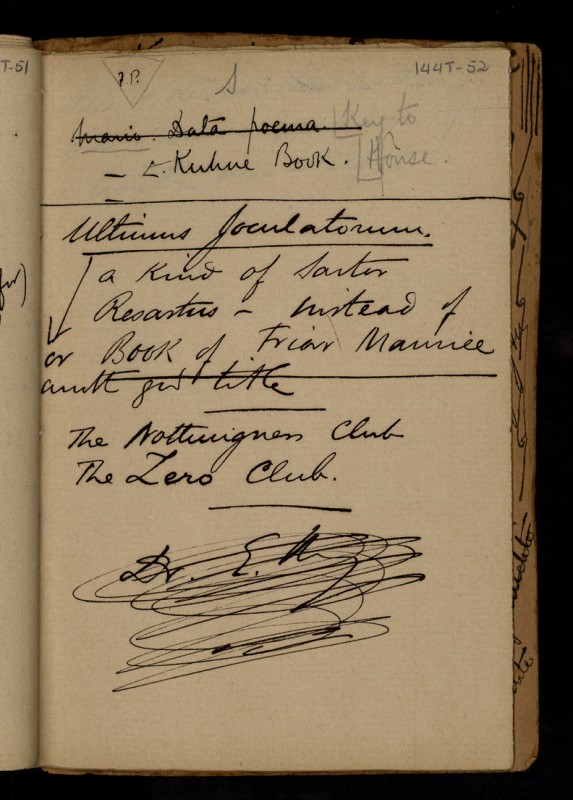 T-51
144T-52
S
Mario. Data poema. Key to
– Kuhne Book. House.
Ultimus Joculatorum.
a kind of Sartor
Resartus – instead of
or Book of Friar Maurice
title
The Nothingness Club
The Zero Club.
Dr. E.